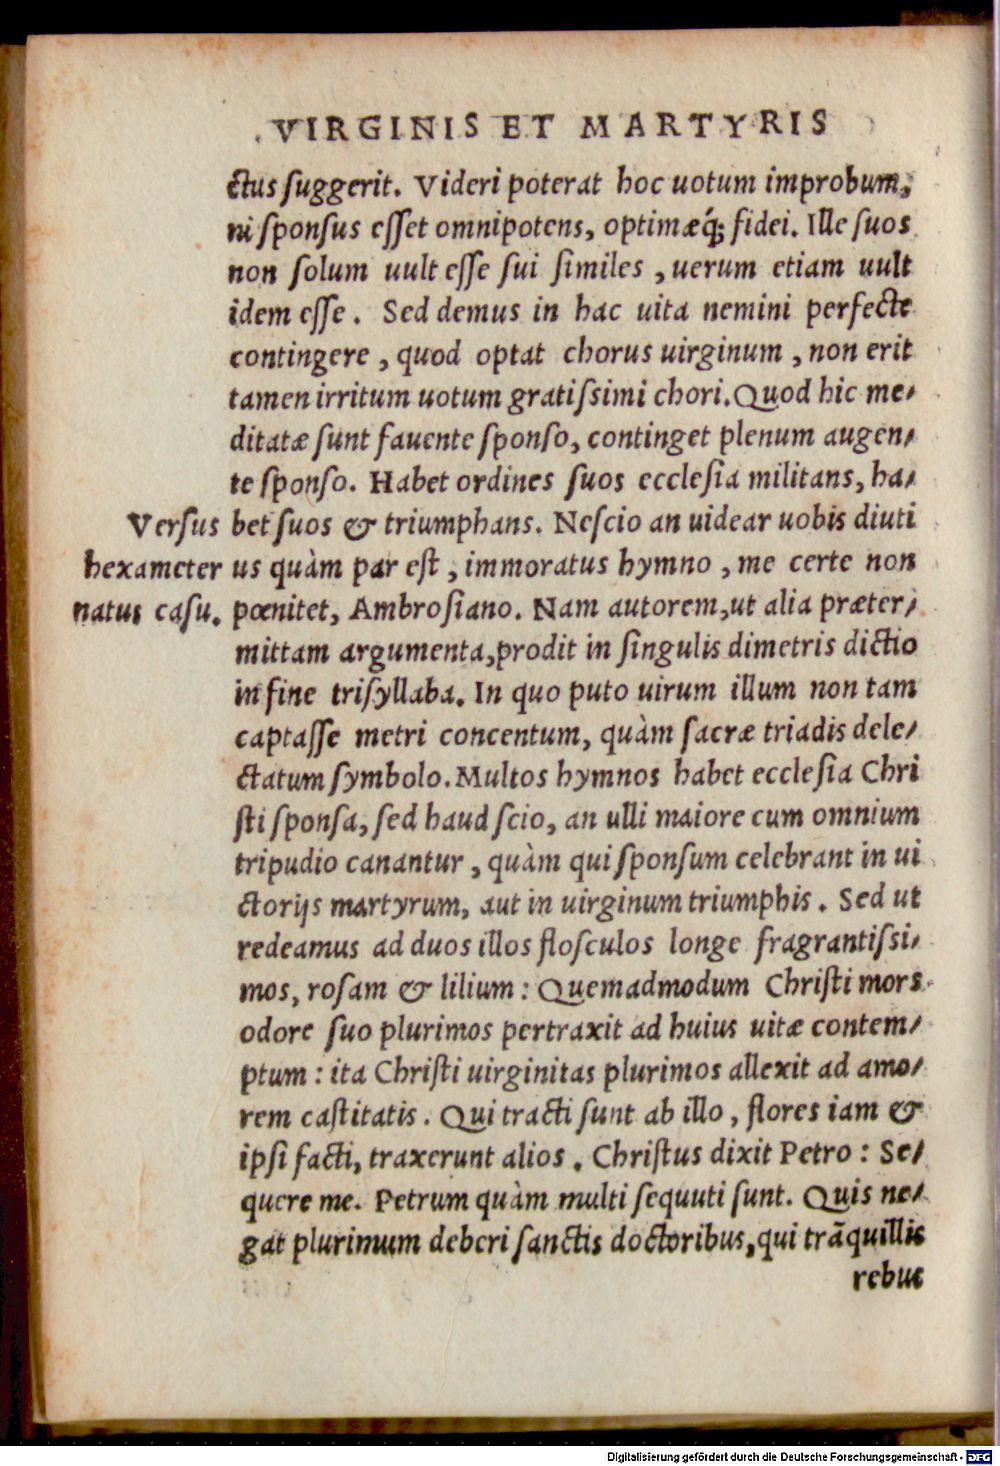 VIRGINIS ET MARTYRIS
ctus suggerit. Videri poterat hoc uotum improbum,
ni sponsus esset omnipotens, optimæq́; fidei. Ille suos
non solum uult esse sui similes, uerum etiam uult
idem esse. Sed demus in hac uita nemini perfecte
contingere, quod optat chorus uirginum, non erit
tamen irritum uotum gratissimi chori. Quod hic me-
ditatæ sunt fauente sponso, continget plenum augen-
te sponso. Habet ordines suos ecclesia militans, ha-
bet suos & triumphans. Nescio an uidear uobis diuti
us quàm par est, immoratus hymno, me certe non
pœnitet, Ambrosiano. Nam autorem, ut alia præter-
mittam argumenta, prodit in singulis dimetris dictio
in fine trisyllaba. In quo puto uirum illum non tam
captasse metri concentum, quàm sacræ triadis dele-
ctatum symbolo. Multos hymnos habet ecclesia Chri
sti sponsa, sed haud scio, an ulli maiore cum omnium
tripudio canantur, quàm qui sponsum celebrant in ui
ctorijs martyrum, aut in uirginum triumphis. Sed ut
redeamus ad duos illos flosculos longe fragrantissi-
mos, rosam & lilium: Quemadmodum Christi mors
odore suo plurimos pertraxit ad huius uitæ contem-
ptum: ita Christi uirginitas plurimos allexit ad amo-
rem castitatis. Qui tracti sunt ab illo, flores iam &
ipsi facti, traxerunt alios. Christus dixit Petro: Se-
quere me. Petrum quàm multi sequuti sunt. Quis ne-
gat plurimum deberi sanctis doctoribus, qui trāquillis
rebus
Versus
hexameter
natus casu.
Digitalisierung gefördert durch die Deutsche Forschungsgemeinschaft - DFG